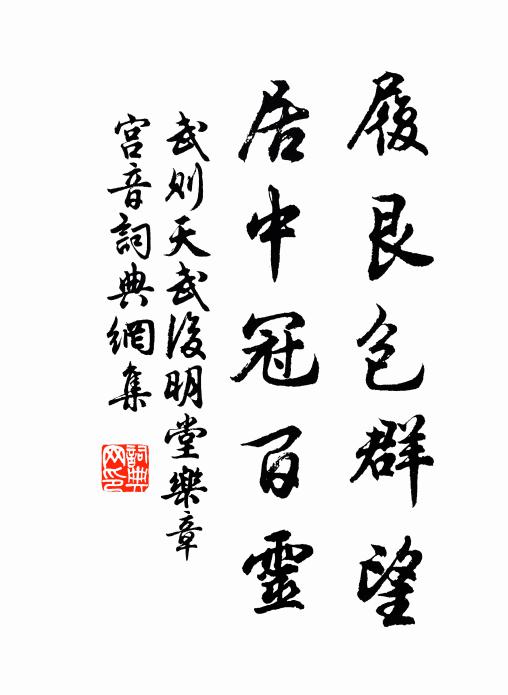 履艮包群望
居中冠百靈
武則天武後明堂樂章
宮音詞典網集
詞典
网印